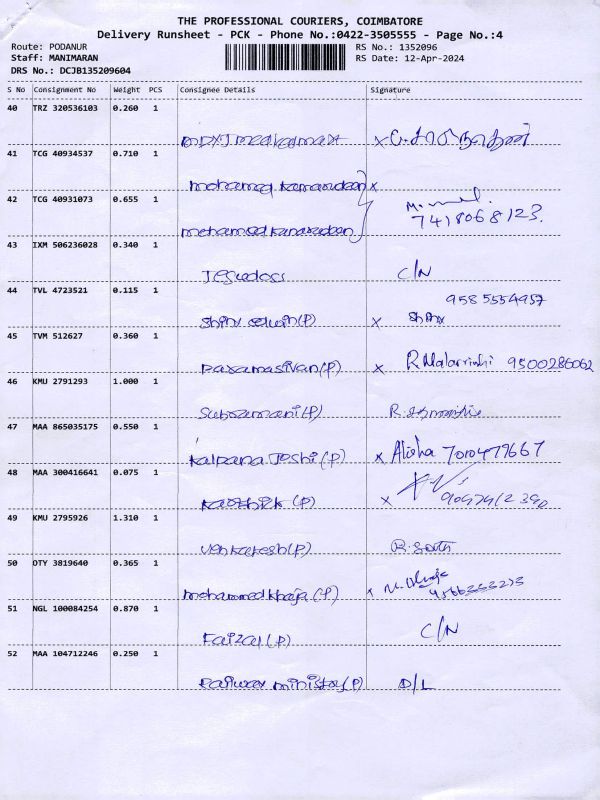 THE PROFESSIONAL COURIERS, COIMBATORE
Delivery Runsheet - PCK - Phone No.:0422-3505555 - Page No.:4
Route: PODANUR
RS No.: 1352096
Staff: MANIMARAN
RS Date: 12-Apr-2024
DRS No.: DCJB135209604
S No Consignment No Weight PCS Consignee Details Signature
40 TRZ 320536103 0.260 1
x
41 TCG 40934537 0.710 1
mohamed x
42 TCG 40931073 0.655 1
7418068123.
mohamed
43 IXM 506236028 0.340 1
C/N
44 TVL 4723521 0.115 1
9585554957
(P) x
45 TVM 512627 0.360 1
Paramasivan (P) x R. 9500286062
46 KMU 2791293 1.000 1
Subramani (P)
47 MAA 865035175 0.550 1
Kalpana Joshi (P) x Alisha 7010479667
48 MAA 300416641 0.075 1
Karthik (P) x
49 KMU 2795926 1.310 1
Venkatesh (P)
50 OTY 3819640 0.365 1
mohammed khaja (P) x
51 NGL 100084254 0.870 1
Faizal (P) C/N
52 MAA 104712246 0.250 1
Railway ministry (P) D/L